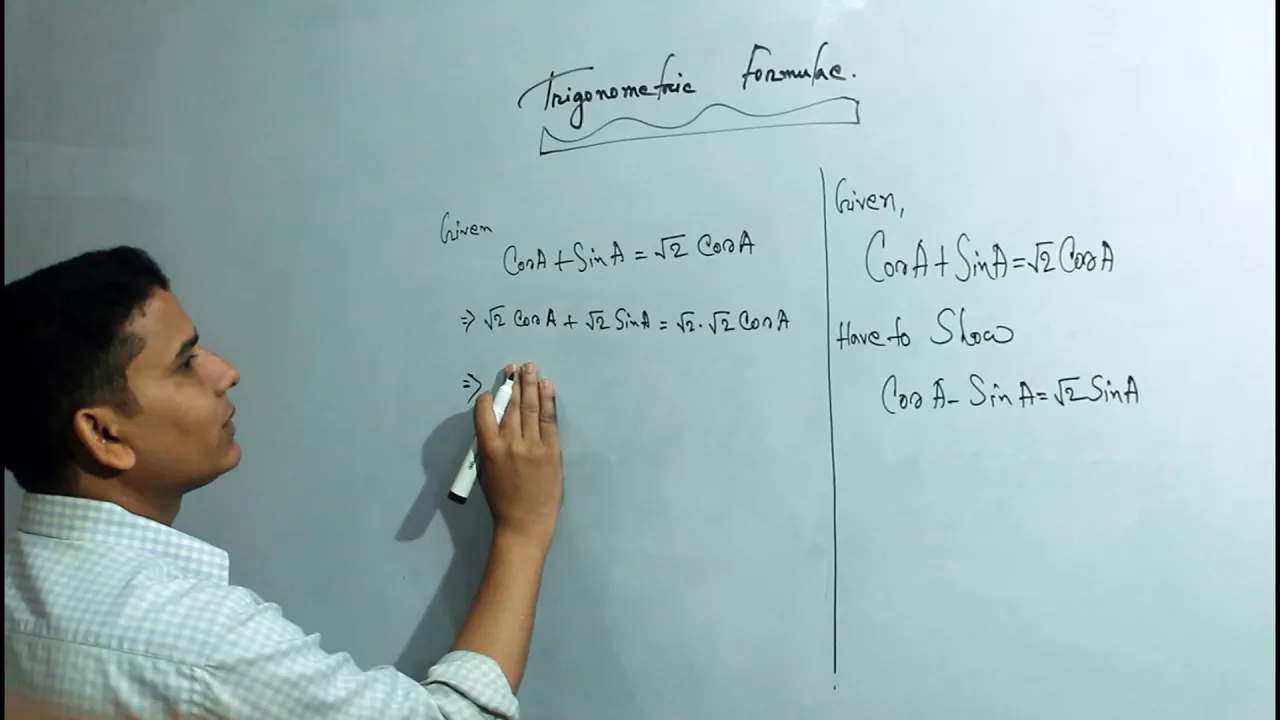 Trigonometric Formulae.
Given
CosA + SinA = √2 CosA
=> √2 CosA + √2 SinA = √2 . √2 CosA
=>
Given,
CosA + SinA = √2 CosA
Have to Show
CosA - SinA = √2 SinA